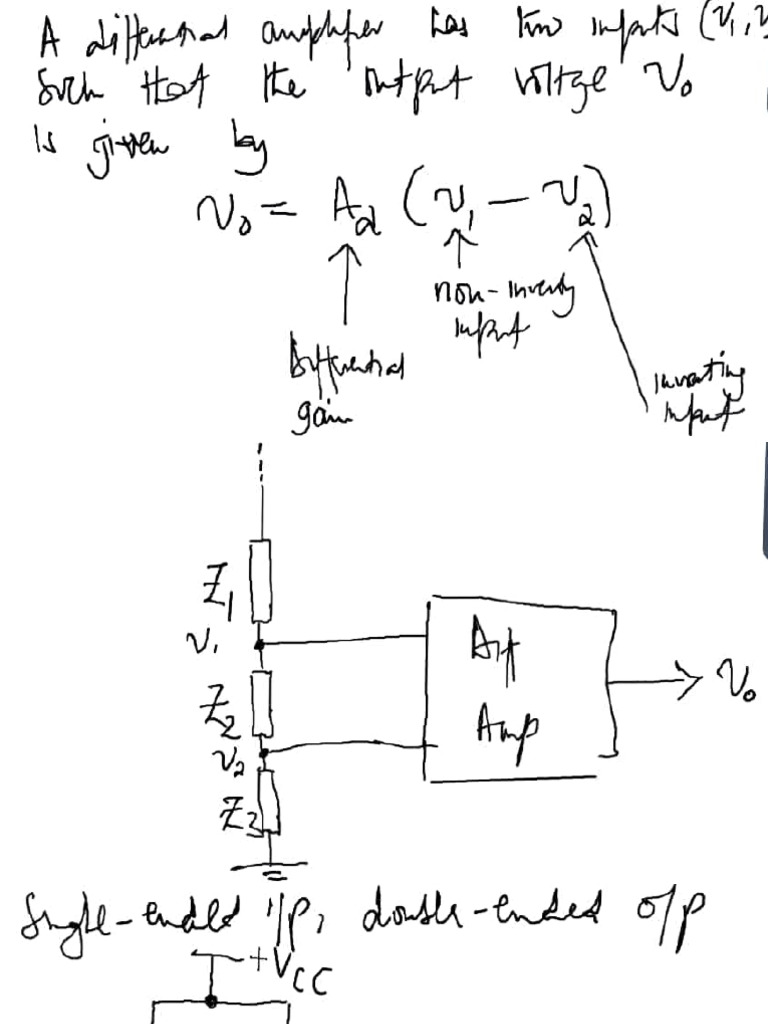 A differential amplifier has two inputs (v₁, v
Such that the output voltage v₀
is given by
v₀ = A_d (v₁ − v₂)
non-inverting
input
Differential
gain
inverting
input
Z₁
v₁
Z₂
v₂
Z₃
Dif
Amp
v₀
Single-ended i/p, double-ended o/p
+V_CC